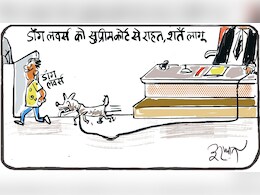 डॉग लवर्स को सुप्रीम कोर्ट से राहत, शर्तें लागू
डॉग
लवर्स